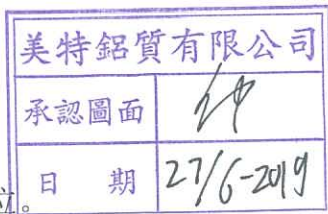 美特鋁質有限公司
承認圖面
日期 27/6-2019
。